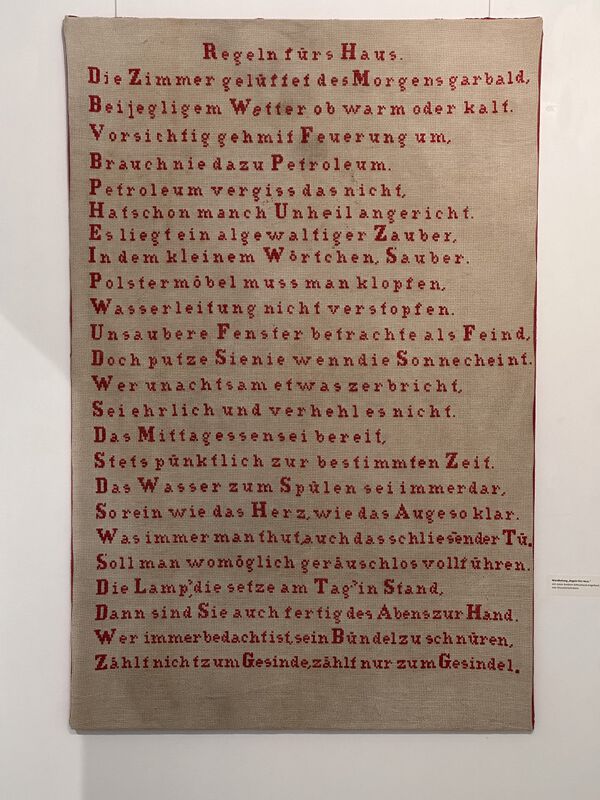 Regeln fürs Haus.
Die Zimmer gelüftet des Morgens gar bald,
Bei jegligem Wetter ob warm oder kalt.
Vorsichtig geh mit Feuerung um,
Brauch nie dazu Petroleum.
Petroleum vergiss das nicht,
Hat schon manch Unheil angericht.
Es liegt ein algewaltiger Zauber,
In dem kleinem Wörtchen, Sauber.
Polstermöbel muss man klopfen,
Wasserleitung nicht verstopfen.
Unsaubere Fenster betrachte als Feind,
Doch putze Sie nie wenn die Sonne cheint.
Wer unachtsam etwas zerbricht,
Sei ehrlich und verhehl es nicht.
Das Mittagessen sei bereit,
Stets pünktlich zur bestimmten Zeit.
Das Wasser zum Spülen sei immer dar,
So rein wie das Herz, wie das Auge so klar.
Was immer man thut, auch das schliesender Tü.
Soll man womöglich geräuschlos vollführen.
Die Lamp', die setze am Tag' in Stand,
Dann sind Sie auch fertig des Abens zur Hand.
Wer immer bedacht ist, sein Bündel zu schnüren,
Zählt nicht zum Gesinde, zählt nur zum Gesindel.